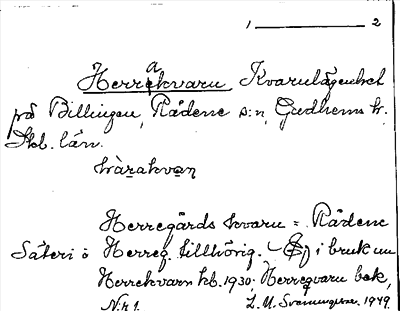 1 2
Herrekvarn, Kvarnlägenhet
på Billingen, Rådene s:n, Gudhems h.
Skb. län.
hä̀rakvan
Herregårds kvarn = Rådene
Säteri ö Herreg. tillhörig. - Ej i bruk nu
Herrekvarn kb. 1930; Herreqvarn bek,
N:r 1. L. M. 1949.